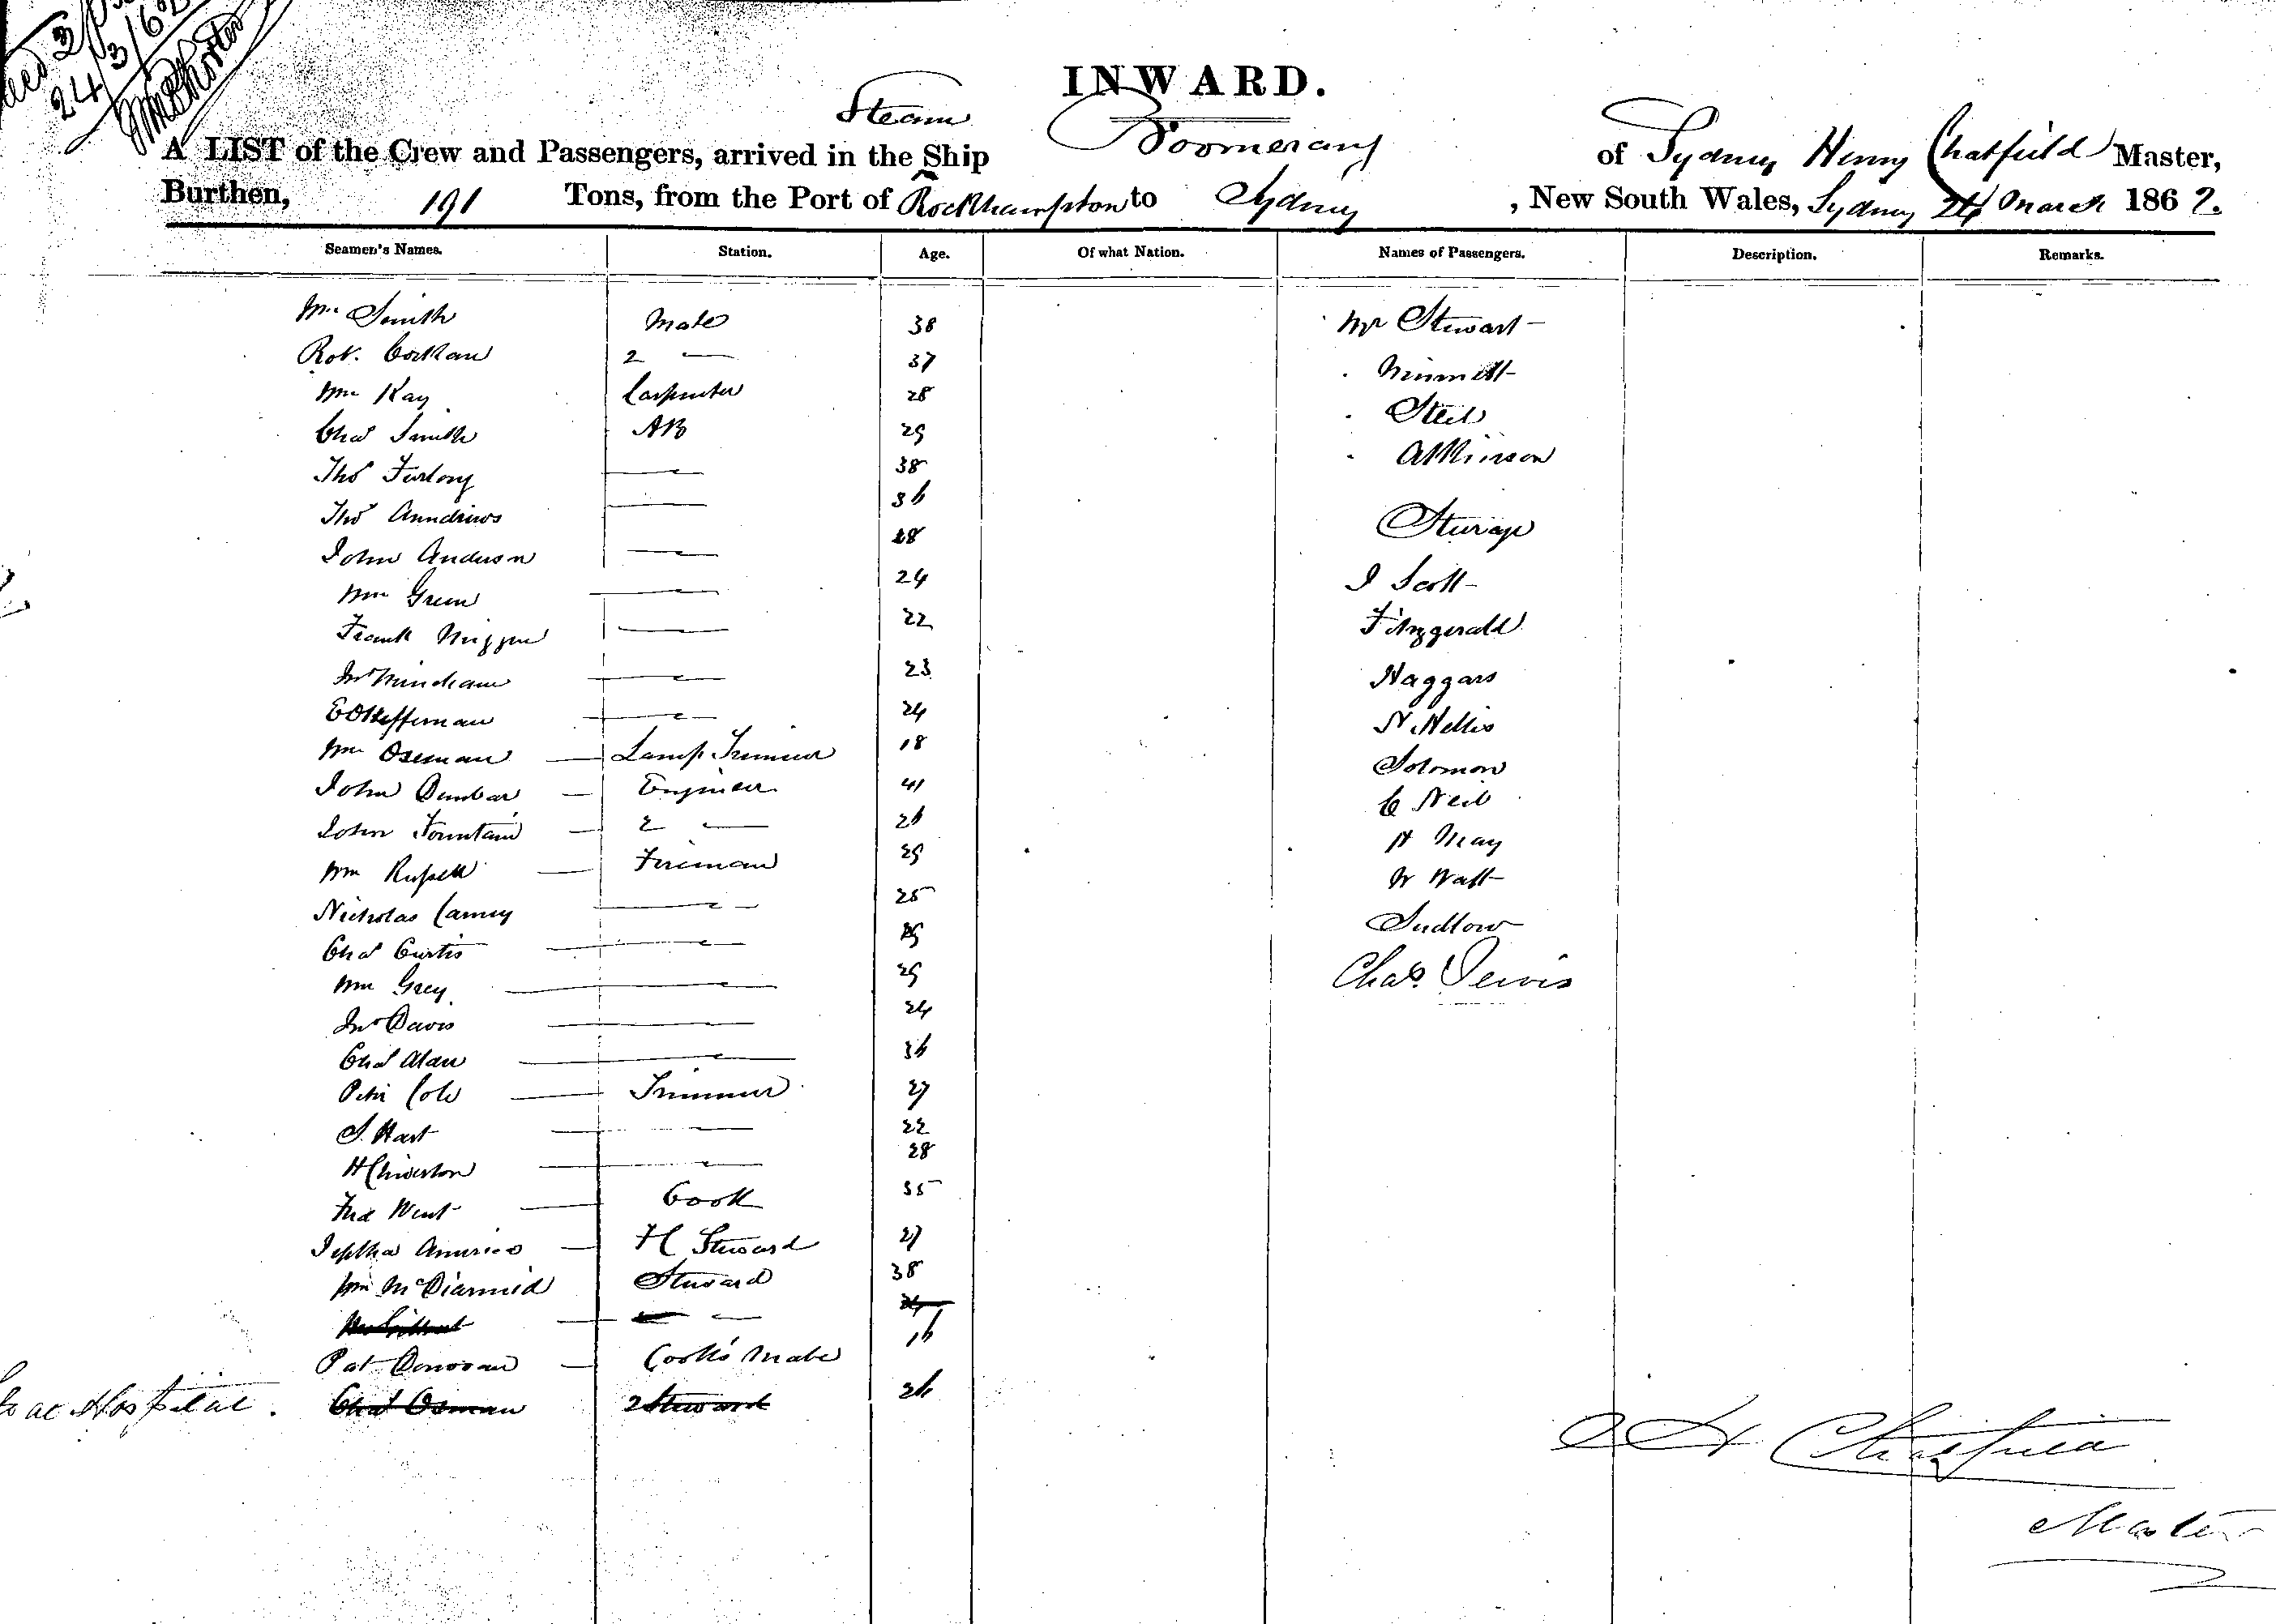 24/3/62
INWARD.
Steam
A LIST of the Crew and Passengers, arrived in the Ship Boomerang of Sydney Henry Chatfield Master,
Burthen, 191 Tons, from the Port of Rockhampton to Sydney, New South Wales, Sydney 24 March 1862.
Seamen's Names. Station. Age. Of what Nation. Names of Passengers. Description. Remarks.
Wm Smith Mate 38 Mr Stewart
Rob. Corkan 2 — 37
Wm Kay Carpenter 28
Chas Smith AB 29 Steel
Thos Furlong — 38 Atkinson
Thos Anndrews — 36
John Anderson — 28 Steerage
Wm Green — 24 J Scott
Frank — 22 Fitzgerald
Jno Mincham — 23 Haggars
E O Heffernan — 24 N. Nellis
Wm Oseman — Lamp Trimmer 18 Solomon
John Dunbar — Engineer 41 C Neil
John Fountain — 2 — 26 H May
Wm Russell — Fireman 29 W Watt
Nicholas Carney — 25 Sudlow
Chas Curtis — 29 Chas. Jervis
Wm Grey — 29
Jno Davis — 24
Chas Alan — 36
Peter Cole — Trimmer 27
S. Hart — 22
H Chiverton — 28
Fred Went — Cook 35
Jeptha Americo — H Steward 27
Wm McDiarmid Steward 38
— 24
Pat Donovan — Cook's Mate 16
Hospital. Chas Osman 2 Steward 26
S H Chatfield
Master